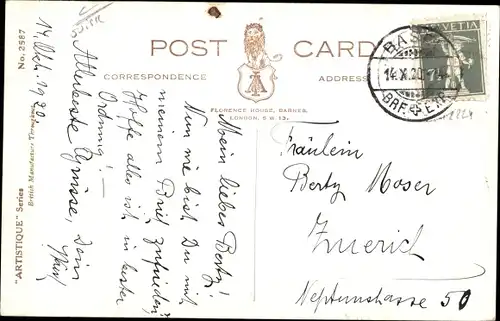 POST CARD
CORRESPONDENCE
ADDRESS
FLORENCE HOUSE, BARNES,
LONDON, S.W. 13.
No. 2587
"ARTISTIQUE" Series
British Manufacture Throughout
HELVETIA
BASEL
14.X.20
BRF. EXP.
Mein liebes Berty!
Nun wie bist Du mit
meinem Brief zufrieden?
Hoffe alles ist in bester
Ordnung! –
Allerbeste Grüsse, Dein
14. Okt. 1920
Fräulein
Berty Moser
Zuerich
Neptunstrasse 50